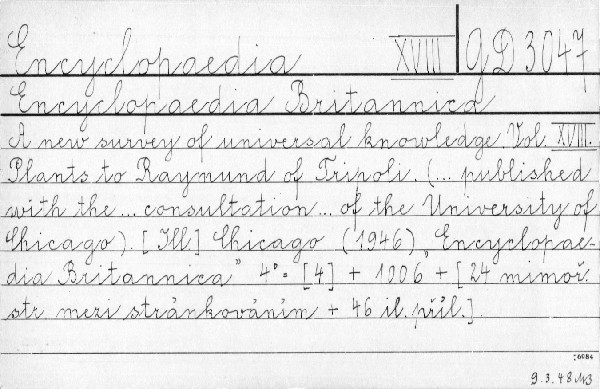 Encyclopaedia XVIII gD 3047
Encyclopaedia Britannica
A new survey of universal knowledge Vol. XVIII.
Plants to Raymund of Tripoli. (... published
with the ... consultation ... of the University of
Chicago). [Ill] Chicago (1946) „Encyclopae-
dia Britannica" 4° = [4] + 1006 + [24 mimoř.
str. mezi stránkováním + 46 il. příl.]
:6084
9.3.48